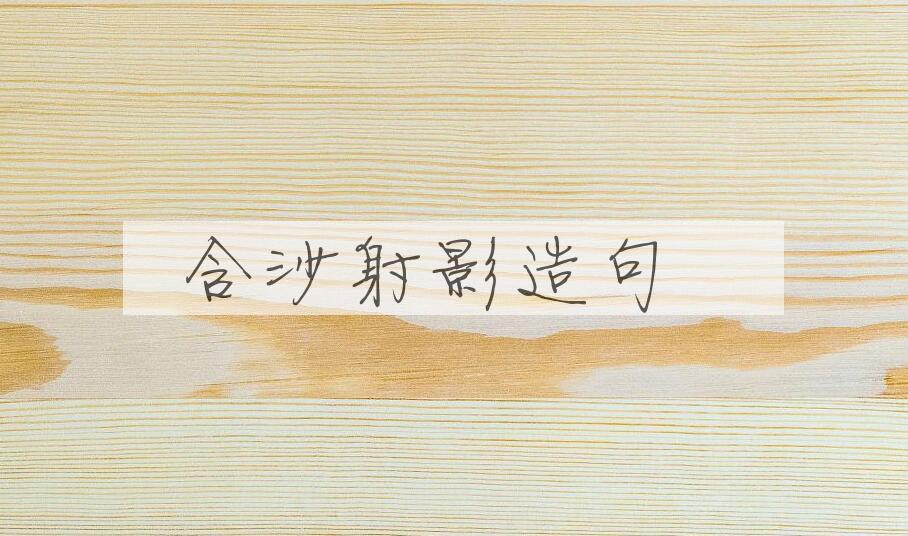 含沙射影造句